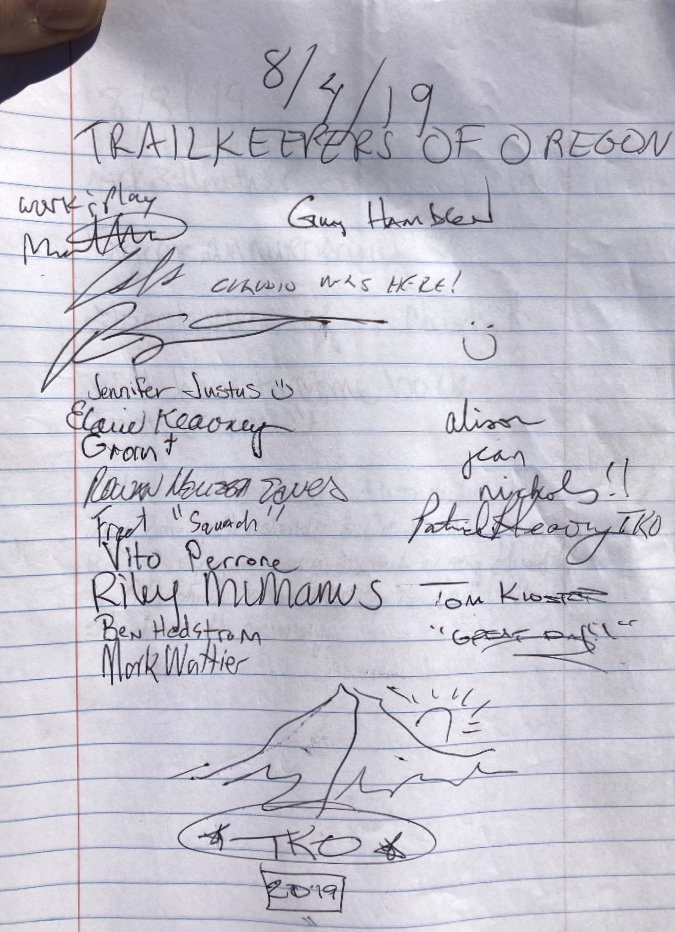 8/4/19
TRAILKEEPERS OF OREGON
work & play
Guy Hamblen
CLAUDIO WAS HERE!
Jennifer Justus
Elaine Keavney
alison
Grant
jean
nichols!!
Rowan
Fred "Squach"
Patrick Keavny TKO
Vito Perrone
Riley McManus
TOM KLOSTER
Ben Hedstrom
"GREAT DAY!"
Mark Wattier
TKO
2019